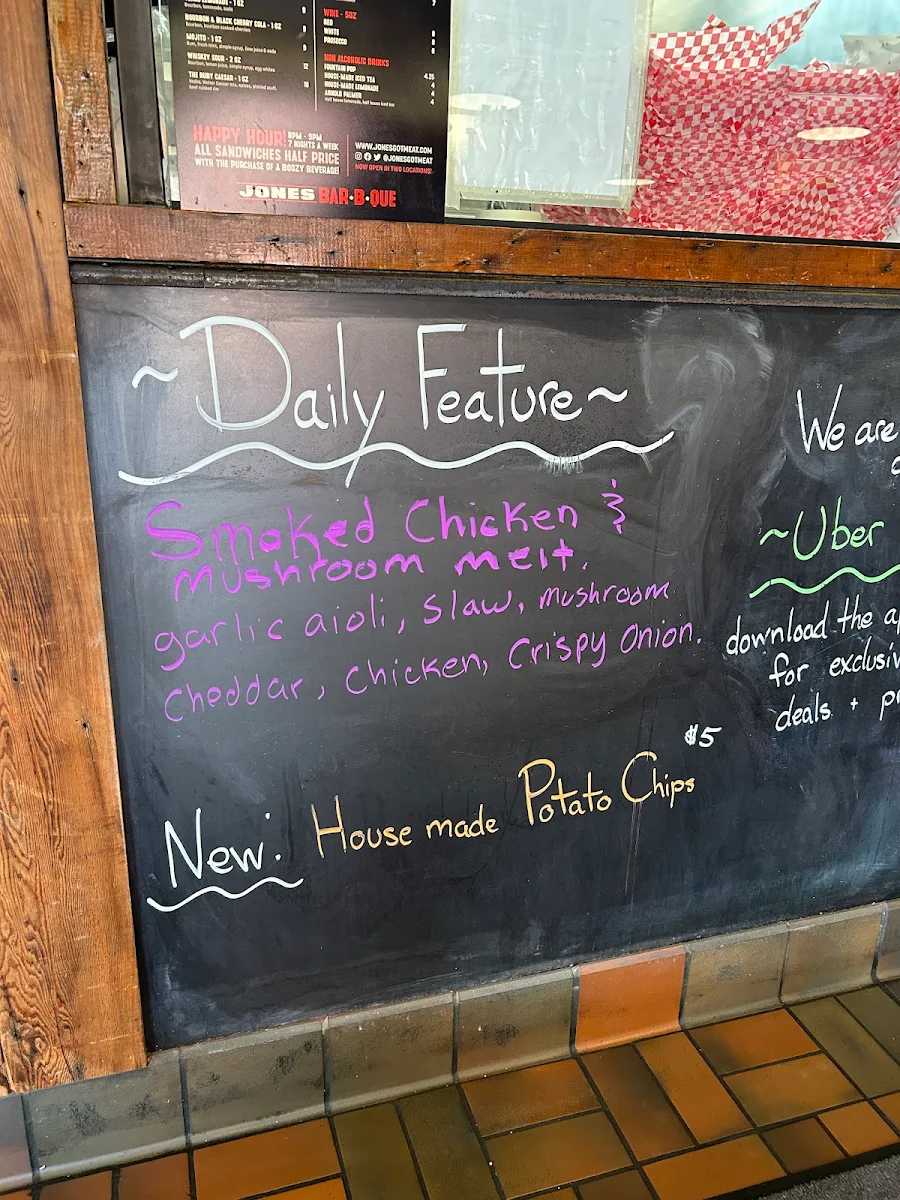 BOURBON & BLACK CHERRY COLA - 1 OZ
Bourbon, bourbon soaked cherries
9
MOJITO - 1 OZ
Rum, fresh mint, simple syrup, lime juice & soda
9
WHISKEY SOUR - 2 OZ
Bourbon, lemon juice, simple syrup, egg white
12
THE RUBY CAESAR - 1 OZ
10
WINE - 5OZ
RED
WHITE
PROSECCO
NON ALCOHOLIC DRINKS
FOUNTAIN POP
HOUSE-MADE ICED TEA
HOUSE-MADE LEMONADE
ARNOLD PALMER
Half house lemonade, half house iced tea
4.25
4
4
4
HAPPY HOUR! 8PM - 9PM
7 NIGHTS A WEEK
ALL SANDWICHES HALF PRICE
WITH THE PURCHASE OF A BOOZY BEVERAGE!
WWW.JONESGOTMEAT.COM
@JONESGOTMEAT
NOW OPEN IN TWO LOCATIONS!
JONES BAR·B·QUE
~Daily Feature~
Smoked Chicken &
mushroom melt.
garlic aioli, slaw, mushroom
cheddar, chicken, crispy onion.
New: House made Potato Chips $5
We are
~Uber
download the
for
deals +